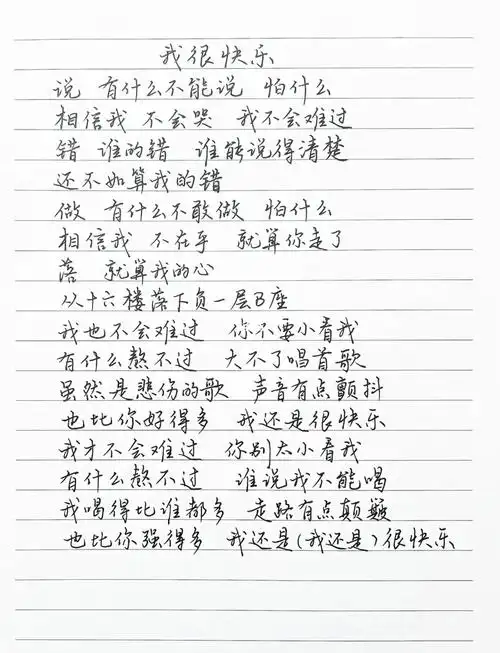 我很快乐
说 有什么不能说 怕什么
相信我 不会哭 我不会难过
错 谁的错 谁能说得清楚
还不如算我的错
做 有什么不敢做 怕什么
相信我 不在乎 就算你走了
落 就算我的心
从十六楼落下负一层B座
我也不会难过 你不要小看我
有什么熬不过 大不了唱首歌
虽然是悲伤的歌 声音有点颤抖
也比你好得多 我还是很快乐
我才不会难过 你别太小看我
有什么熬不过 谁说我不能喝
我喝得比谁都多 走路有点颠簸
也比你强得多 我还是(我还是)很快乐